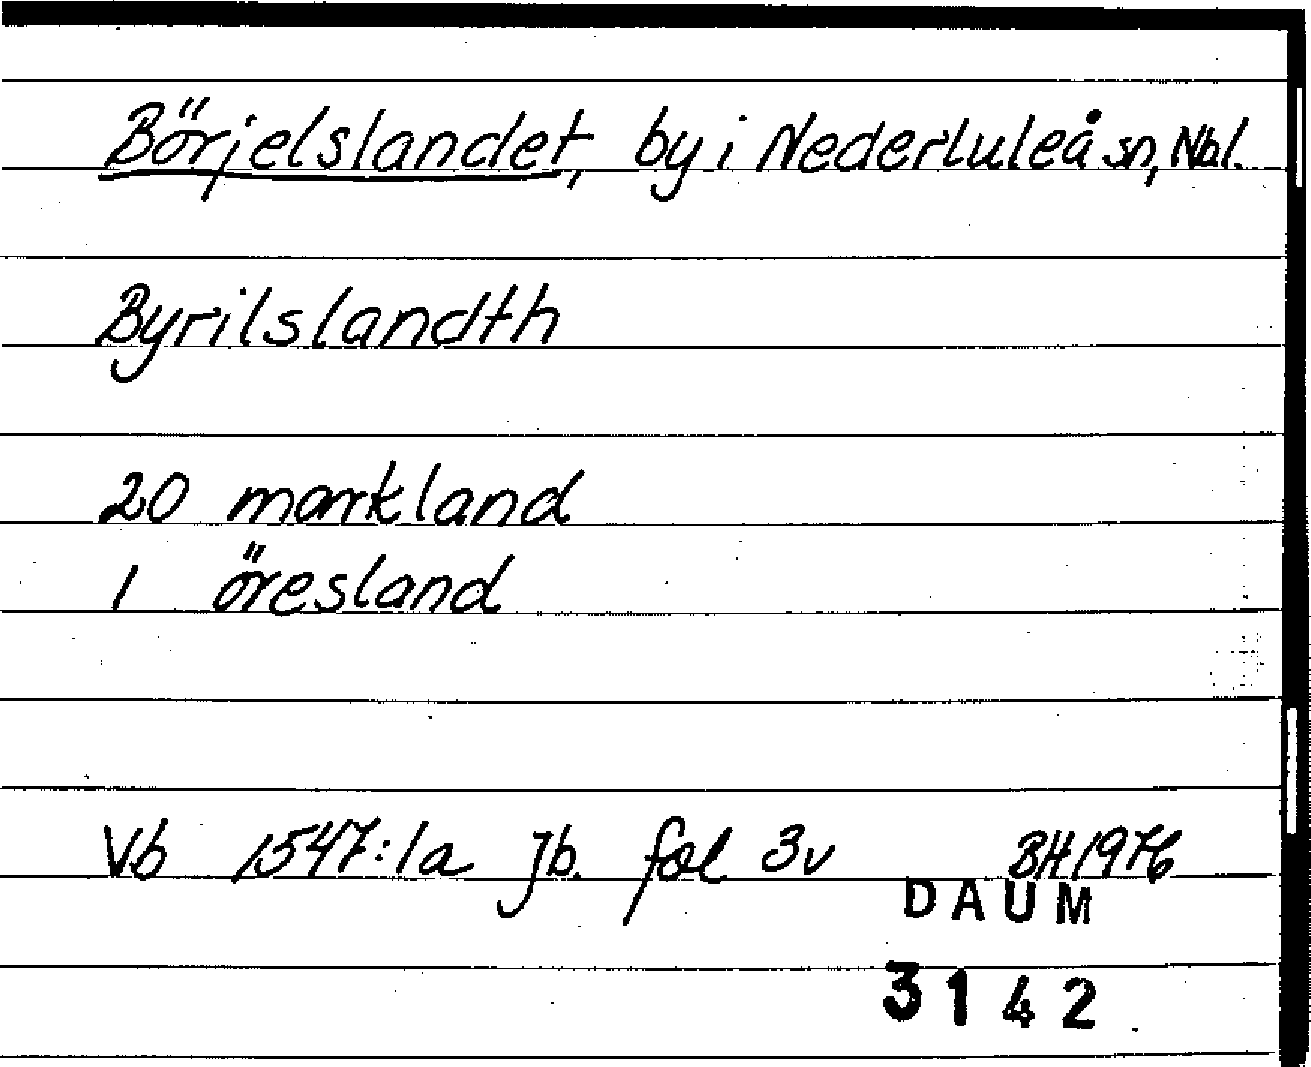 Börjelslandet, by i Nederluleå sn, Nbl.
Byrilslandth
20 markland
1 öresland
Vb 1547:1a Jb. fol 3v BH 1976
DAUM
3142